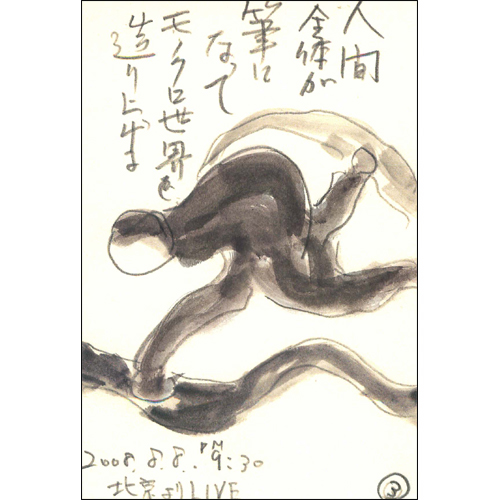 人間
全体が
筆に
なって
モノクロ世界を
造り上げま
2008.8.8. PM 9:30
北京よりLIVE
③